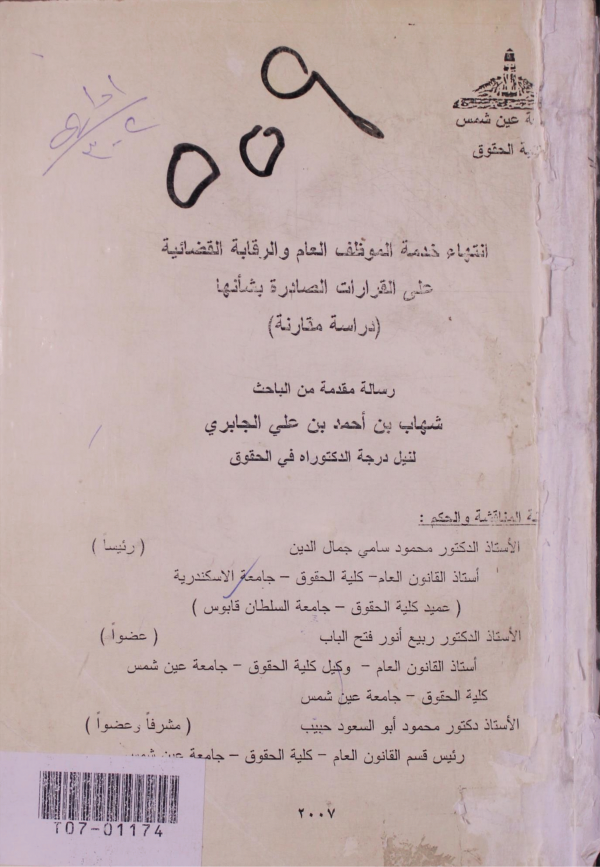 ة عين شمس
ية الحقوق
٥٥٩
انتهاء خدمة الموظف العام والرقابة القضائية
على القرارات الصادرة بشأنها
(دراسة مقارنة)
رسالة مقدمة من الباحث
شهاب بن أحمد بن علي الجابري
لنيل درجة الدكتوراه في الحقوق
ة المناقشة والحكم :
الأستاذ الدكتور محمود سامي جمال الدين ( رئيساً )
أستاذ القانون العام – كلية الحقوق – جامعة الاسكندرية
( عميد كلية الحقوق – جامعة السلطان قابوس )
الأستاذ الدكتور ربيع أنور فتح الباب ( عضواً )
أستاذ القانون العام – وكيل كلية الحقوق – جامعة عين شمس
كلية الحقوق – جامعة عين شمس
الأستاذ دكتور محمود أبو السعود حبيب ( مشرفاً وعضواً )
رئيس قسم القانون العام – كلية الحقوق – جامعة عين شمس
T07-01174
٢٠٠٧